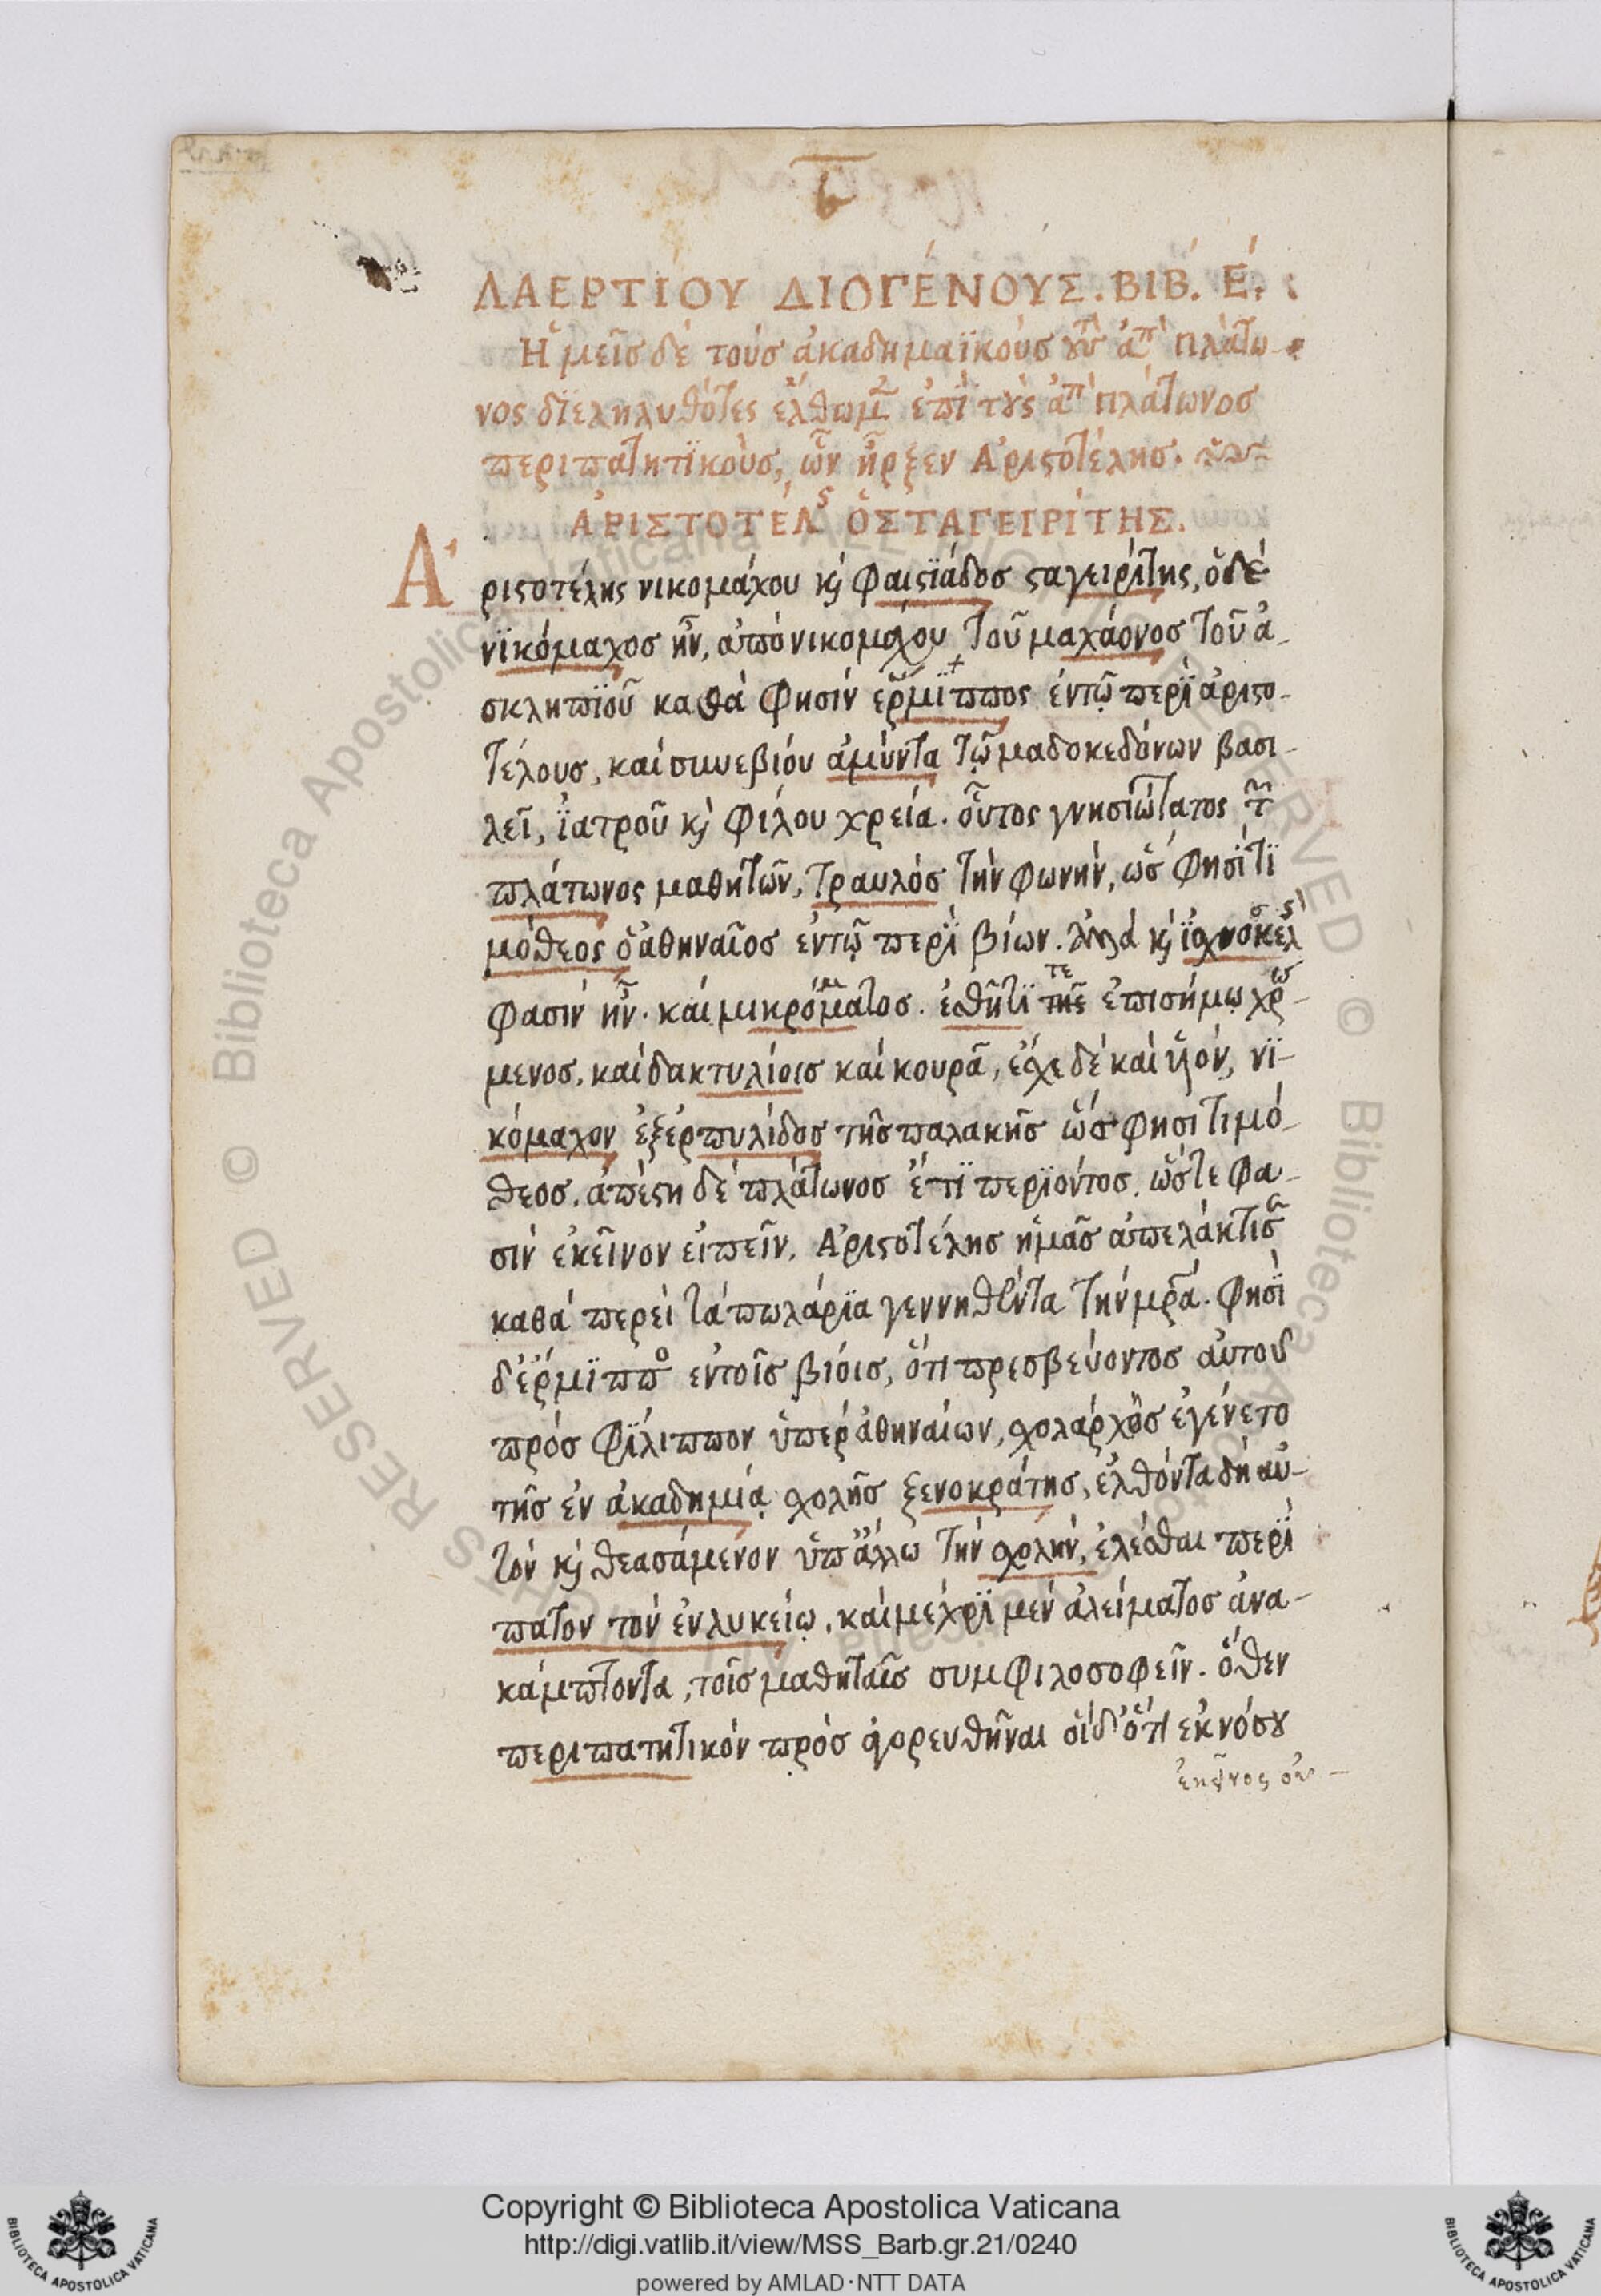 ΛΑΕΡΤΙΟΥ ΔΙΟΓΈΝΟΥΣ. ΒΙΒ. Έ. :
Ἡμεῖσ δὲ τοὺσ ἀκαδημαϊκοὺσ ἀπ πλάτω
νος διεληλυθότες ἔλθωμ ἐπὶ τοὺς ἀπ πλάτωνοσ
περιπατητικοὺσ, ὧν ἦρξεν Ἀριστοτέλησ.
ἈΡΙΣΤΟΤΈΛς ὉΣΤΑΓΕΙΡΊΤΗΣ.
Ἀ
ριστοτέλης νικομάχου κὶ φαιστιάδοσ σταγειρίτης, ὁ δέ
νϊκόμαχοσ ἦν, ἀπὸ νικομάχου τοῦ μαχάονοσ τοῦ ἀ-
σκληπϊοῦ καθά φησίν ἕρμϊππος ἐν τῷ περὶ ἀριστο-
τέλουσ, καὶ συνεβίου ἀμύντα τῷ μαδοκεδόνων βασι-
λεῖ, ϊατροῦ κὶ φίλου χρεία. οὗτος γνησιώτατος τ
πλάτωνος μαθητῶν, τραυλόσ τὴν φωνήν, ὥσ φησί τϊ
μόθεος ὁ ἀθηναῖοσ ἐν τῷ περὶ βίων. ἀλλά κὶ ϊσχνοσκελ
φασίν ἦν. καὶ μικρόμματοσ. ἐσθῆτϊ τε ἐπισήμῳ χρώ-
μενοσ, καὶ δακτυλίοισ καὶ κουρᾶ, ἔσχε δέ καὶ υἱόν, νϊ-
κόμαχον ἐξ ἑρπυλίδοσ τῆσ παλακῆσ ὥσ φησι τιμό-
θεοσ. ἀπέστη δέ πλάτωνοσ ἔτϊ περϊόντοσ. ὥστε φα-
σίν ἐκεῖνον εἰπεῖν. Ἀριστοτέλησ ἡμᾶσ ἀπελάκτισ
καθά περεὶ τά πωλάρϊα γεννηθέντα τήν μρα. φησὶ
δ' ἕρμϊππο ἐν τοῖσ βίοισ, ὅτι πρεσβεύοντοσ αὐτοῦ
πρόσ φϊλιππον ὑπέρ ἀθηναίων, σχολάρχοσ ἐγένετο
τῆσ ἐν ἀκαδημίᾳ σχολῆσ ξενοκράτησ, ἐλθόντα δὴ αὐ-
τόν κὶ θεασάμενον ὑπ' ἄλλω τήν σχολήν, ἑλέσθαι περὶ
πατον τόν ἐν λυκείῳ. καὶ μέχρϊ μέν ἀλείματοσ ἀνα-
κάμπτοντα, τοῖσ μαθηταῖσ συμφιλοσοφεῖν. ὅθεν
περιπατητικόν προσαγορευθῆναι οἱ δ' ὅτι ἐκ νόσου
Copyright © Biblioteca Apostolica Vaticana
http://digi.vatlib.it/view/MSS_Barb.gr.21/0240
powered by AMLAD·NTT DATA